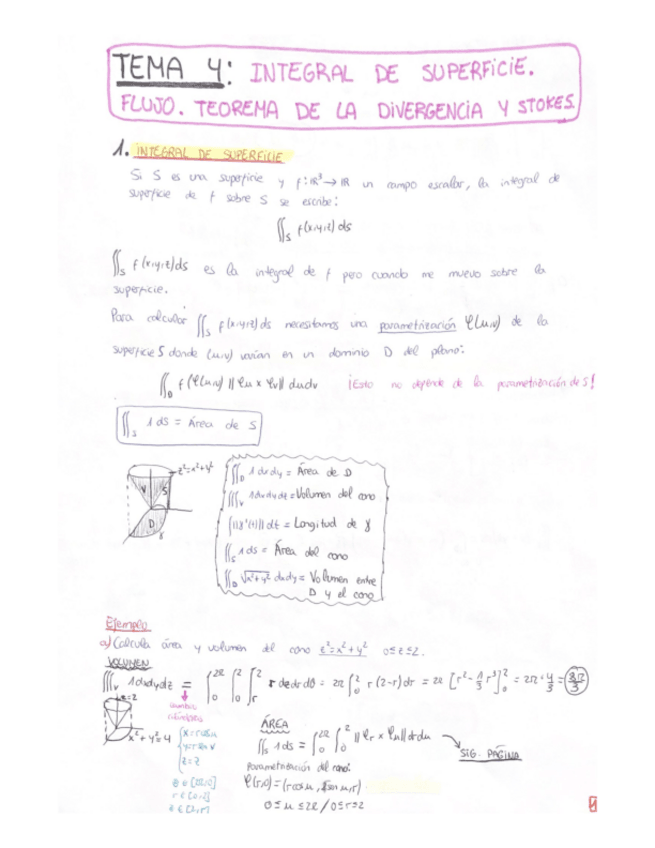 TEMA 4: INTEGRAL DE SUPERFICIE.
FLUJO. TEOREMA DE LA DIVERGENCIA Y STOKES.
1. INTEGRAL DE SUPERFICIE
Si S es una superficie y f: ℝ³ → ℝ un campo escalar, la integral de
superficie de f sobre S se escribe:
∬_S f(x,y,z) ds
∬_S f(x,y,z) ds es la integral de f pero cuando me muevo sobre la
superficie.
Para calcular ∬_S f(x,y,z) ds necesitamos una parametrización φ(u,v) de la
superficie S donde (u,v) varían en un dominio D del plano:
∬_D f(φ(u,v)) ||φu x φv|| dudv ¡Esto no depende de la parametrización de S!
∬_S 1 ds = Área de S
z²=x²+y²
V
S
D
γ
∬_D 1 dxdy = Área de D
∭_V 1dxdydz = Volumen del cono
∫||γ'(t)|| dt = Longitud de γ
∬_S 1 ds = Área del cono
∬_D √x²+y² dxdy = Volumen entre
D y el cono
Ejemplo
a) Calcula área y volumen del cono z²=x²+y² 0≤z≤2.
VOLUMEN
∭_V 1dxdydz = ∫_0^2π ∫_0^2 ∫_r^2 r dzdrdθ = 2π ∫_0^2 r(2-r)dr = 2π [r² - 1/3 r³]_0^2 = 2π · 4/3 = 8π/3
z=2
cilíndricas
x²+y²=4
z=z
θ ∈ [2π,0]
r ∈ [0,2]
ÁREA
∬_S 1 ds = ∫_0^2π ∫_0^2 ||φr x φu|| drdu
SIG. PÁGINA
Parametrización del cono:
0≤u≤2π / 0≤r≤2